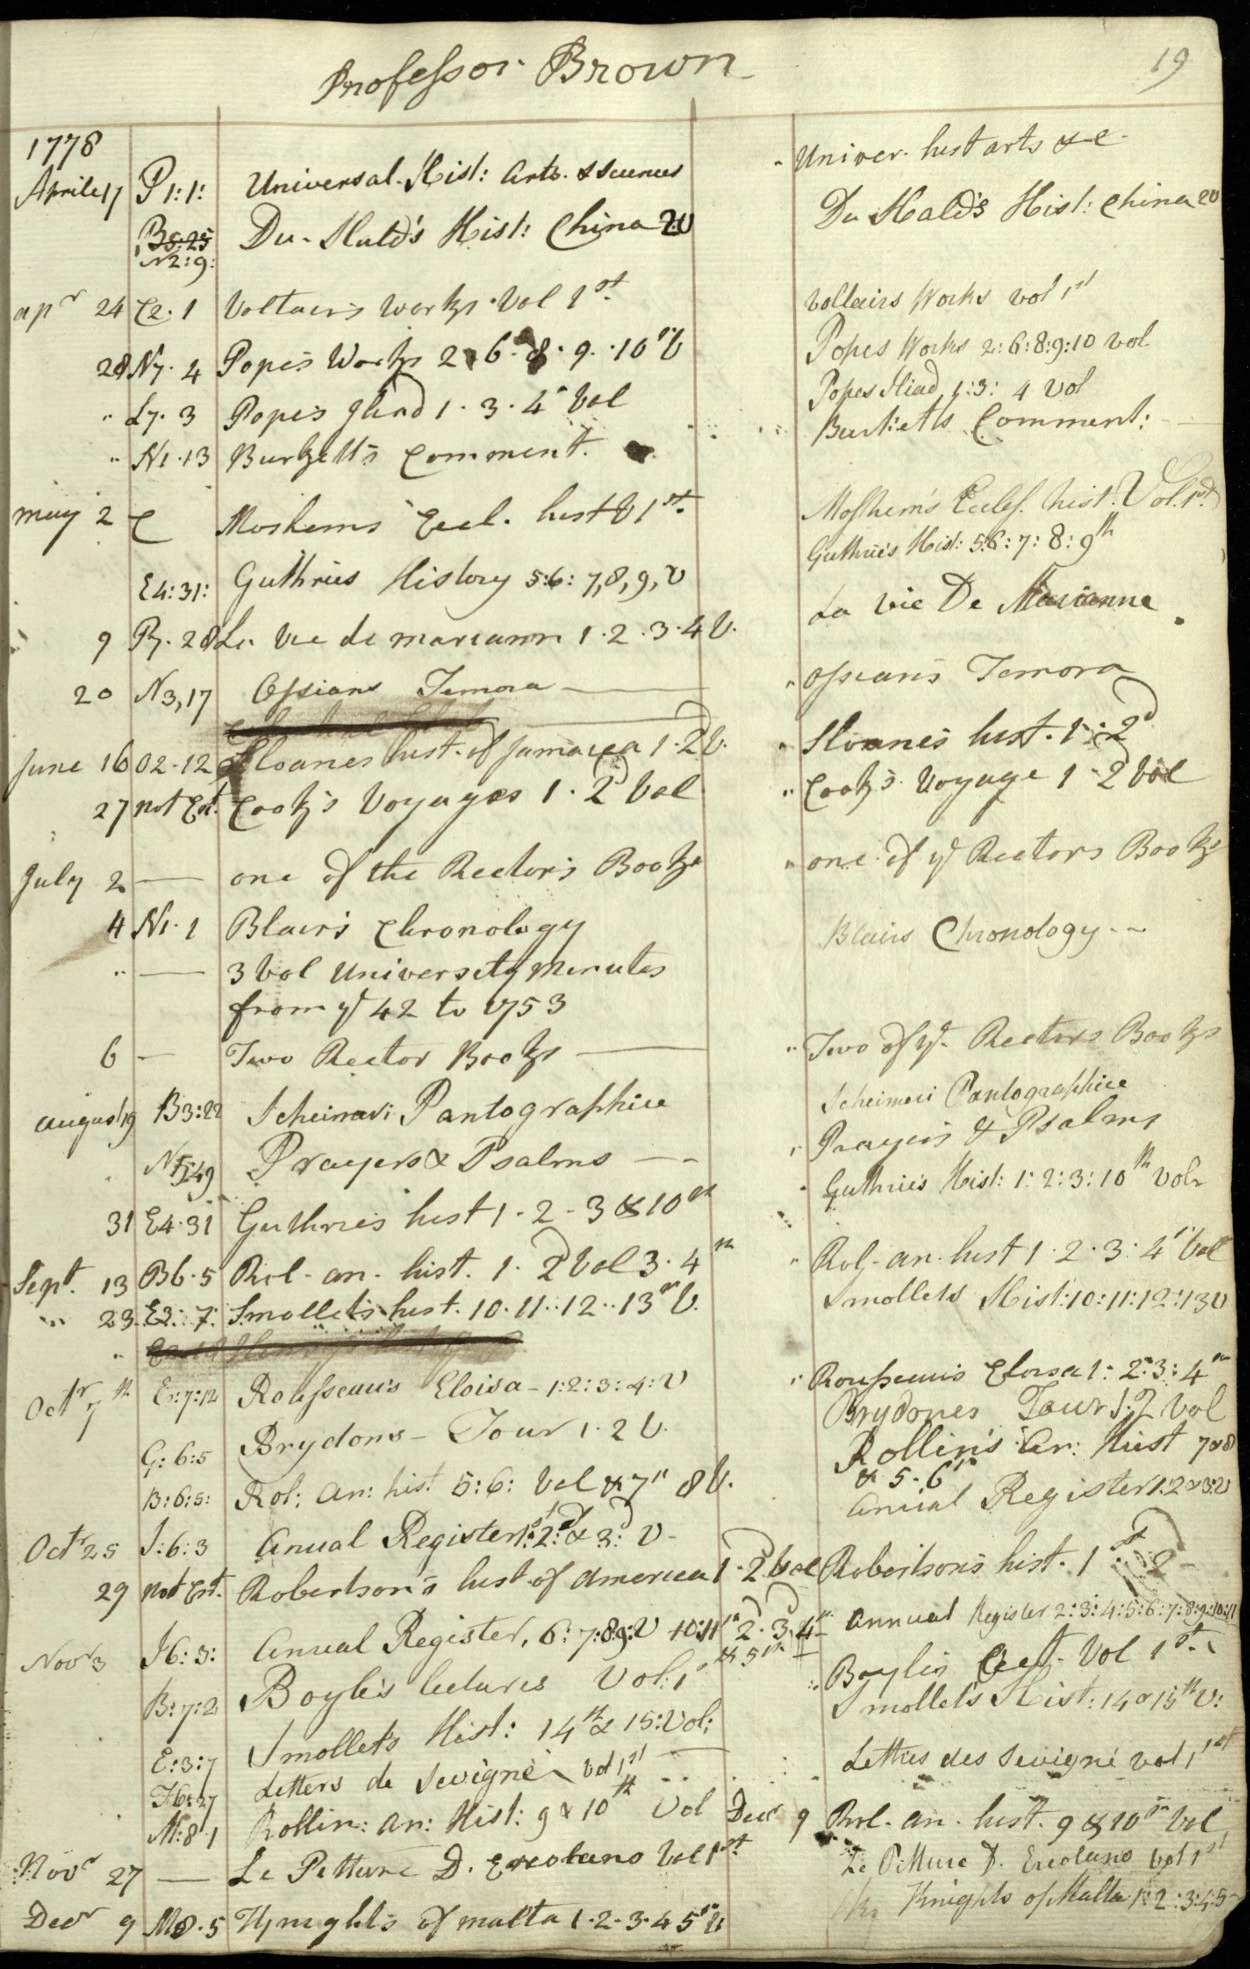 Professor Brown 19
1778
Aprile 17 P 1:1: Universal. Hist: Arts. & Sciences Univer. hist arts &c.
B5:25 N2:9: Du-Hald's Hist: China 2v Du Hald's Hist: China 2v
apr 24 C2.1 Voltairs works. Vol 1st. Voltairs Works vol 1st
28 N7.4 Popes Works 2.6.8.9.10th V Popes Works 2:6:8:9:10 vol
" L7.3 Popes Iliad 1.3.4th Vol Popes Iliad 1:3: 4 vol
" N1.13 Burketts Comment. Burketts Comment:
may 2 C Moshems Eccl. hist V 1st. Moshem's Eccles. hist. Vol. 1st
E4:31: Guthries History 5:6:7,8,9,v Guthries Hist: 5:6:7:8:9th
9 P7.28 La Vie de mariann 1.2.3.4 V. La vie De Marianne
20 N3,17 Ossians Temora Ossians Temora
June 16 O2.12 Sloanes hist. of Jamaica 1.2d V. Sloanes hist. 1.2d
27 not Ent. Cook's Voyages 1.2d Vol Cook's Voyage 1.2d Vol
July 2 — one of the Rectors Books one of ye Rectors Books
4 N1.1 Blairs Chronology Blairs Chronology --
" — 3 Vol University Minutes
from ye 42 to 1753
6 — Two Rector Books Two of ye Rectors Books
August 19 B3:22 Scheinari Pantographice Scheineri Pantographice
N5:49 Prayers & Psalms -- Prayers & Psalms
31 E4.31 Guthries hist 1.2-3 & 10th Guthries Hist: 1:2:3:10th vols
Sept. 13 B6.5 Rol- an. hist. 1.2d Vol 3.4th Rol- an. hist 1.2.3.4th Vol
" 23 E3:7: Smollets hist. 10.11.12..13th V. Smollets Hist:10:11:12:13 v
Octr 7th E:7:12 Rousseau's Eloisa-1:2:3:4:v Rousseaus Eloisa 1:2:3:4th
G:6:5 Brydons- Tour 1.2 V. Brydones Tour 1:2 Vol
B:6:5: Rol: an: hist 5:6: Vol & 7th 8 V. Rollin's An: Hist 7&8
& 5-6th
Octr 25 I:6:3 Anual Register 1st:2d:& 3d: v- Anual Register 1:2&3:v
29 not Ent. Robertson's hist of America 1.2d Vol Robertsons hist. 1st..2d
Novr 3 I6:3: Anual Register, 6:7:8:9:v 10:11th 2d.3d.4th Annual Register 2:3:4:5:6:7:8:9:10:11
& 5th
B:7:2 Boyle's lectures Vol:1st Boyles Lect. Vol 1st.
E:3:7 Smollets Hist: 14th & 15:Vol: Smollet's Hist: 14 & 15th v:
Letters de Sevigne Vol 1st Lettres des Sevigné vol 1st
M:8:1 Rollin: An: Hist: 9 & 10th Vol Decr 9 Rol- an. hist. 9 & 10th Vol
Novr 27 — Le Pitture D. Ercolano Vol 1st. Le Pitture D. Ercolano Vol 1st
Decr 9 M8.5 Knights of malta 1.2.3.4 5th V Knights of Malta 1:2:3:4:5